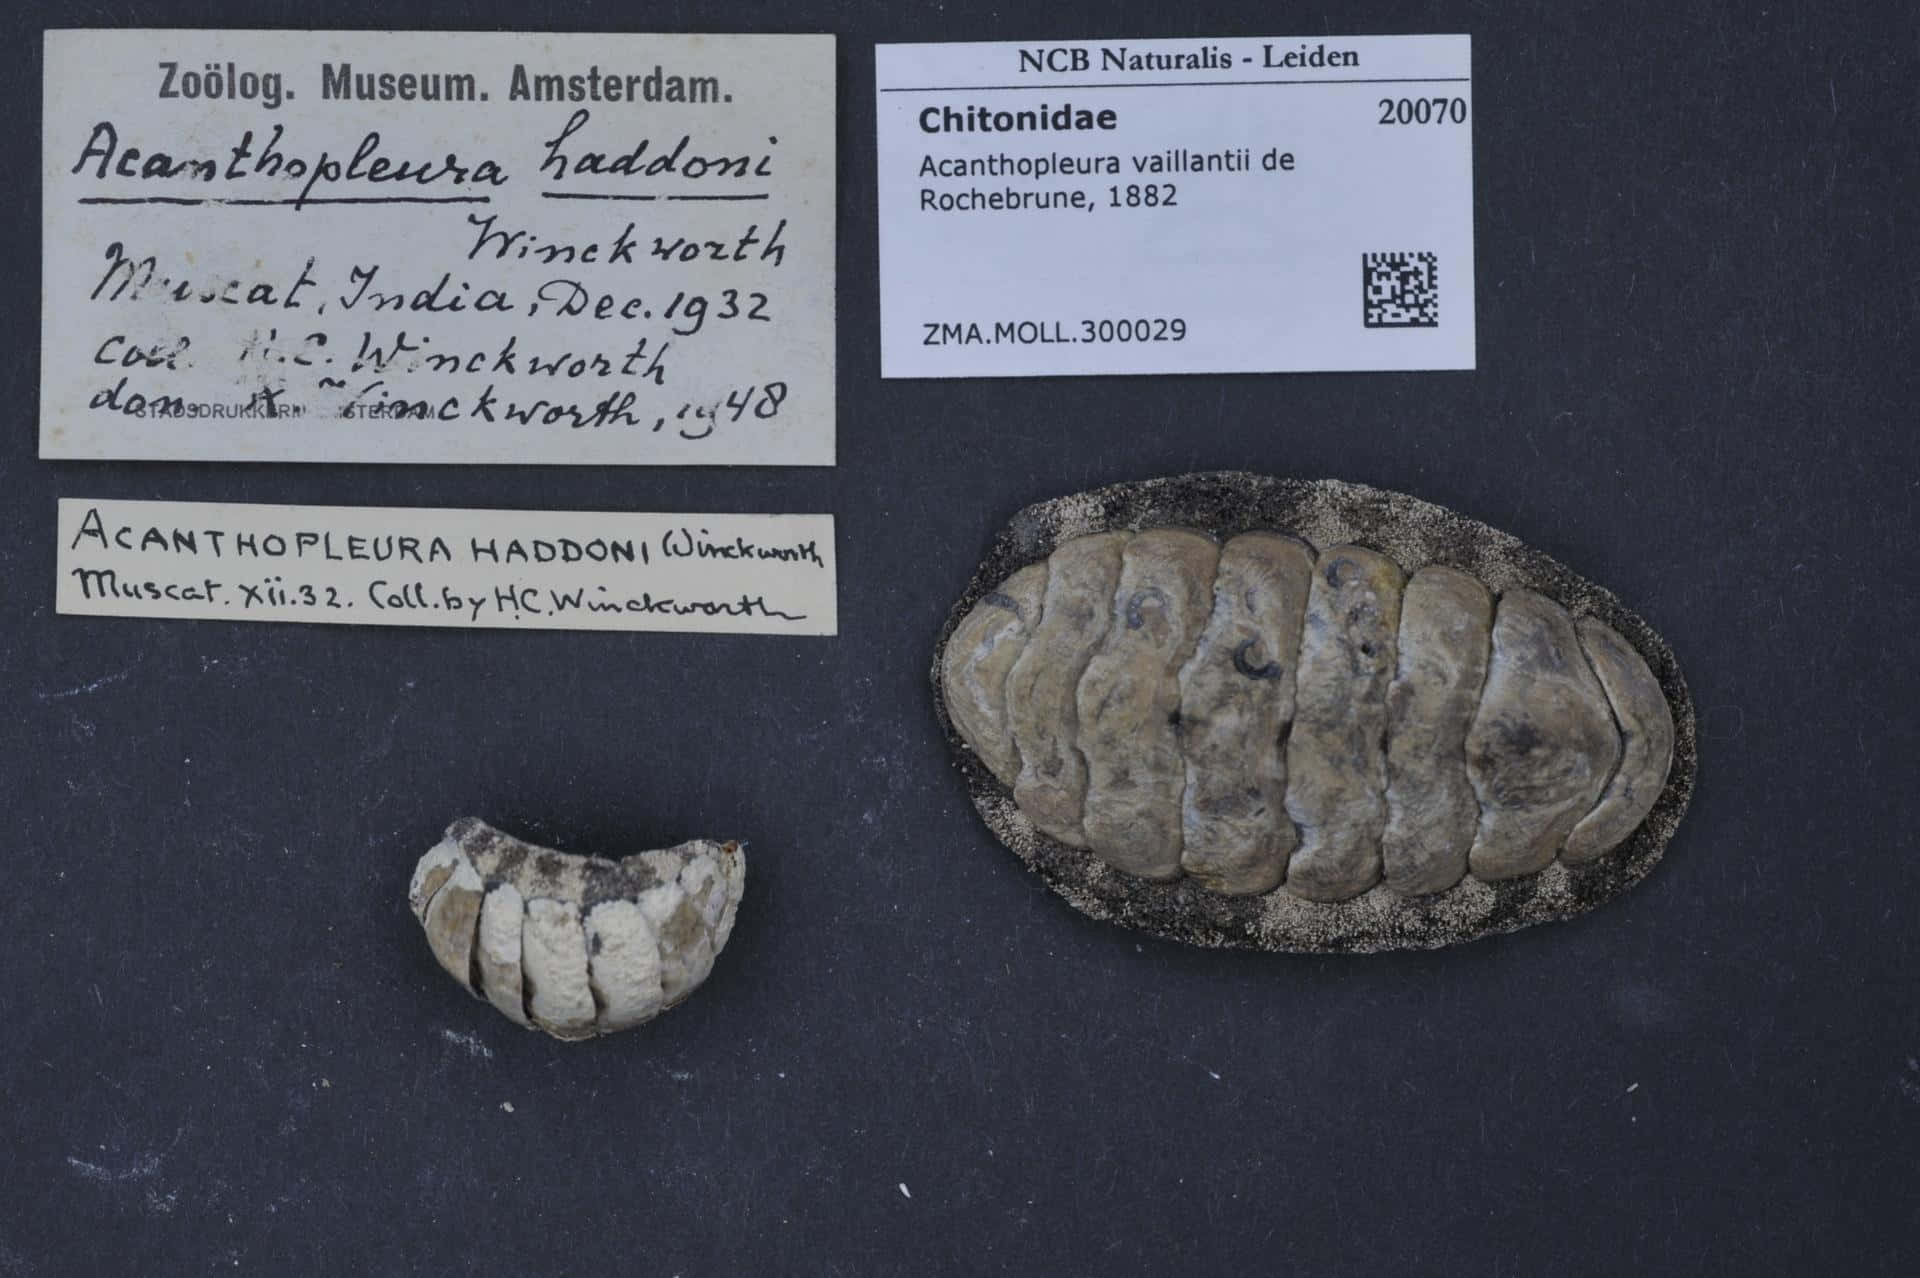 Zoölog. Museum. Amsterdam.
Acanthopleura haddoni
Winckworth
Muscat, India, Dec. 1932
Coll. H.C. Winckworth
don. Winckworth, 1948
STADSDRUKKERIJ AMSTERDAM
ACANTHOPLEURA HADDONI Winckworth
Muscat. xii.32. Coll. by H.C. Winckworth
NCB Naturalis - Leiden
Chitonidae 20070
Acanthopleura vaillantii de
Rochebrune, 1882
ZMA.MOLL.300029